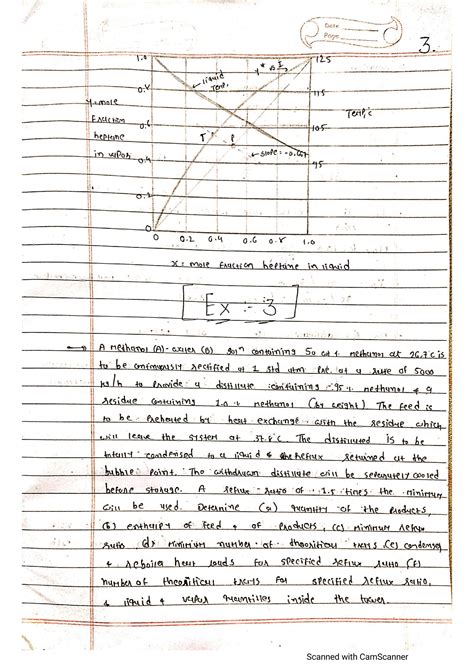 Date
Page
3.
1.0
0.8
0.6
0.4
0.2
0
125
115
105
95
liquid
Temp.
y* vs x
T
P
slope = -0.667
Temp,°c
y=mole
Fraction
heptane
in vapor
0 0.2 0.4 0.6 0.8 1.0
x = mole fraction heptane in liquid
[Ex :- 3]
→ A methanol (A) - water (B) sol^n containing 50 wt % methanol at 26.7°c is
to be continuously rectified at 1 std atm pre. at a rate of 5000
kg/h to provide a distillate containing 95% methanol & a
residue containing 1.0% methanol (by weight) The feed is
to be preheated by heat exchange with the residue which
will leave the system at 37.8°c. The distillated is to be
totally condensed to a liquid & the reflux retuned at the
bubble point. The withdrawn distillate will be separately cooled
before storage. A reflux ratio of 1.5 times the minimum
will be used. Determine (a) quantity of the products,
(b) enthalpy of feed & of products, (c) minimum reflux
ratio (d) minimum number of theoritical trays (e) condenser
& reboiler heat loads for specified reflux ratio (f)
number of theoritical trays for specified reflux ratio,
& liquid & vapur quantities inside the tower.
Scanned with CamScanner